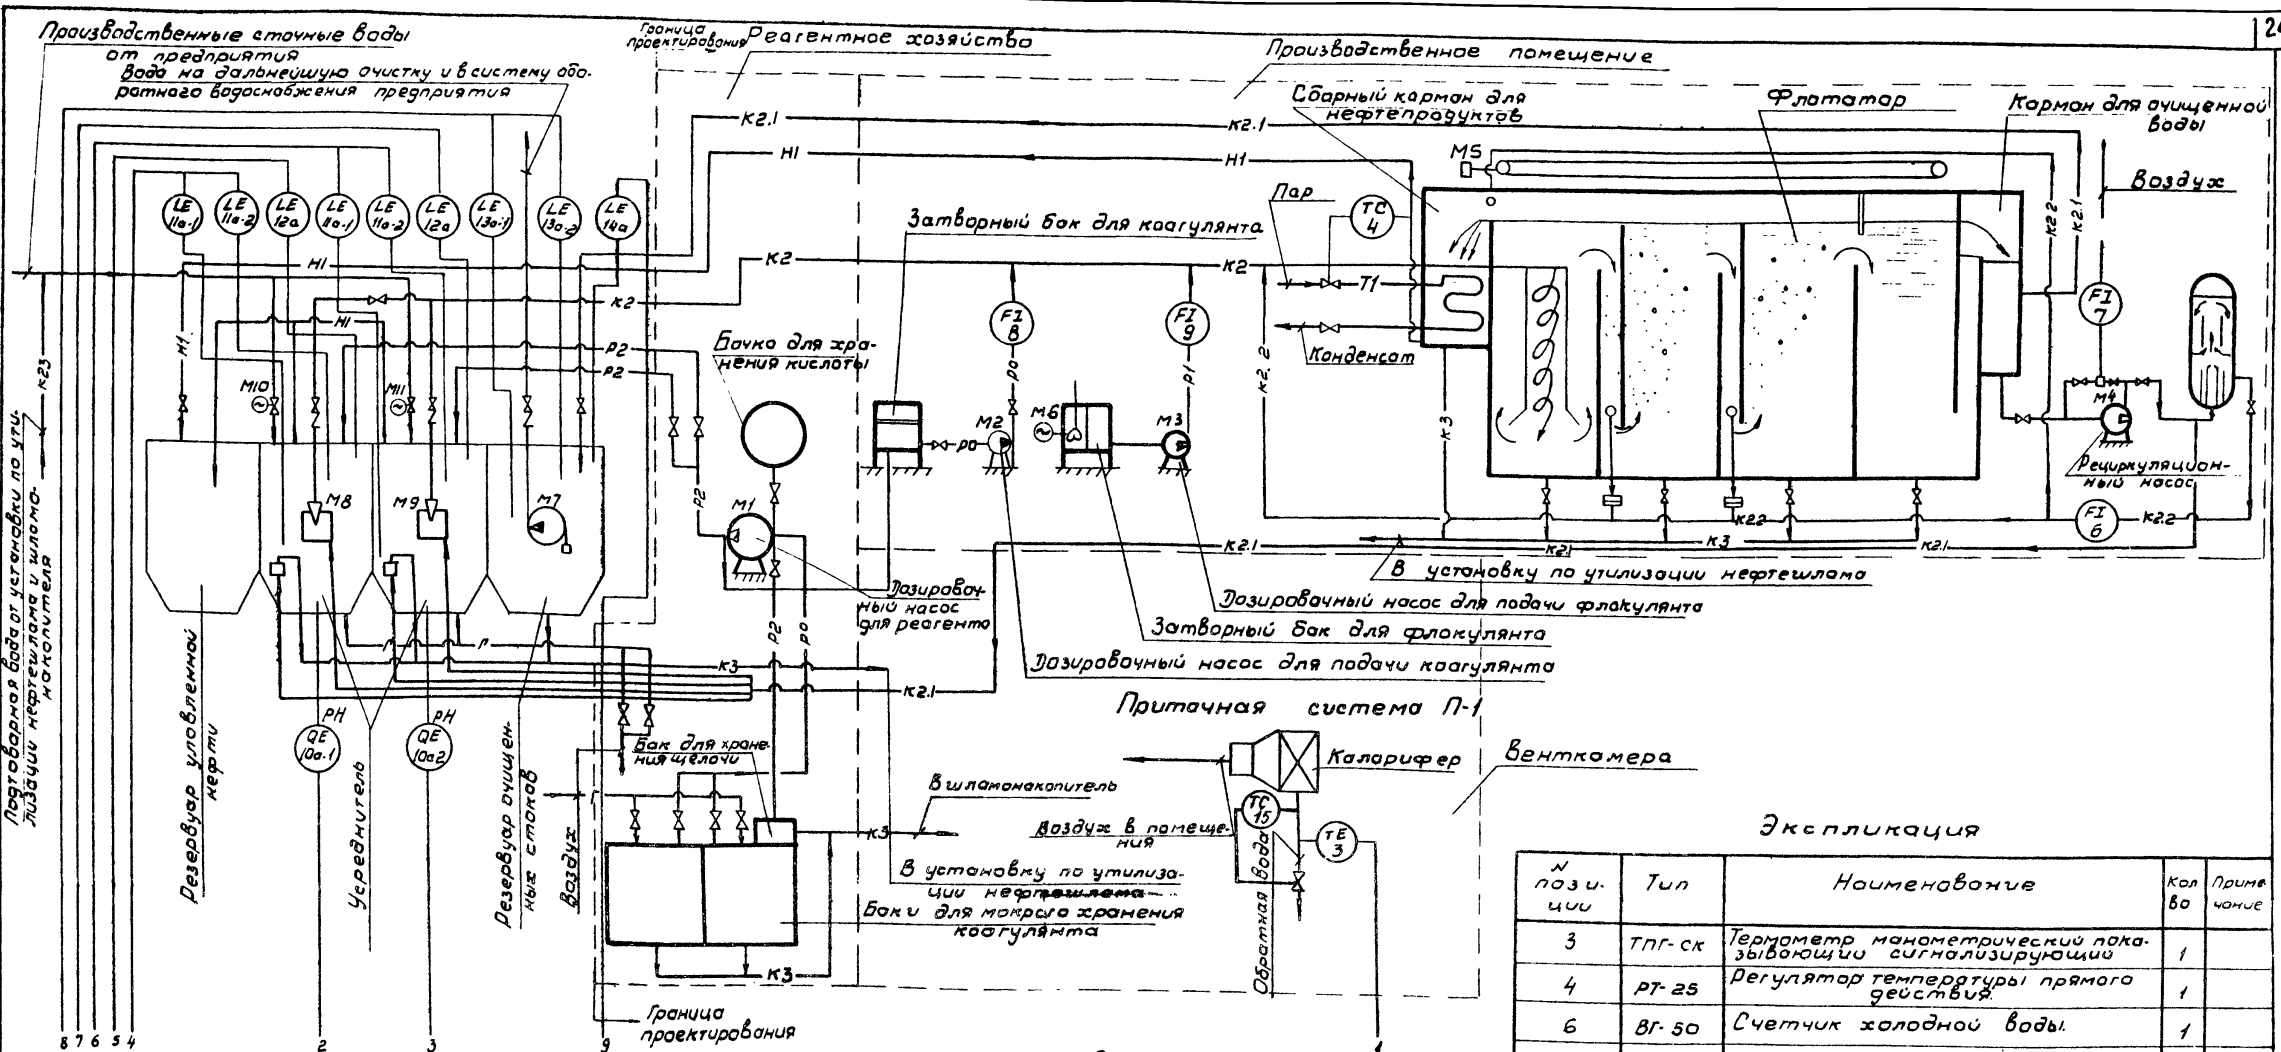 24
Производственные сточные воды
от предприятия
Вода на дальнейшую очистку и в систему обо-
ротного водоснабжения предприятия
Граница
проектирования
Реагентное хозяйство
Производственное помещение
Сборный карман для
нефтепродуктов
Флотатор
Карман для очищенной
воды
К2.1
К2.1
Н1
Н1
М5
Воздух
К2.2
К2.1
Пар
ТС
4
LE
11а-1
LE
11а-2
LE
12а
LE
11а-1
LE
11а-2
LE
12а
LE
13а-1
LE
13а-2
LE
14а
Затворный бак для коагулянта
Н1
К2
К2
К2
Т1
Н1
Н1
К23
FI
8
FI
9
FI
7
Конденсат
Р2
Р2
Бочка для хра-
нения кислоты
М10
М11
Р0
Р1
К2.2
К3
М2
Р0
М6
М3
М4
Рециркуляцион-
ный насос
М8
М9
М7
М1
Р2
К2.1
К22
К2.1
К3
К2.1
FI
6
К2.2
В установку по утилизации нефтешлама
Дозировоч-
ный насос
для реагента
Дозировочный насос для подачи флокулянта
Затворный бак для флокулянта
Дозировочный насос для подачи коагулянта
Р2
Р0
К3
К2.1
Подтоварная вода от установки по ути-
лизации нефтешлама и шламо-
накопителя
Резервуар уловленной
нефти
РН
QE
10а-1
Усреднитель
РН
QE
10а2
Резервуар очищен-
ных стоков
Воздух
Бак для хране-
ния щелочи
Приточная система П-1
Калорифер
Венткамера
В шламонакопитель
К3
Воздух в помеще-
ния
ТС
15
ТЕ
3
Обратная вода
В установку по утилиза-
ции нефтешлама
Баки для мокрого хранения
коагулянта
К3
Граница
проектирования
8 7 6 5 4 2 3 9 1
Экспликация
N позиции Тип Наименование Кол во Приме чание
3 ТПГ-СК Термометр манометрический пока-
зывающий сигнализирующий 1
4 РТ-25 Регулятор температуры прямого
действия. 1
6 ВГ-50 Счетчик холодной воды. 1